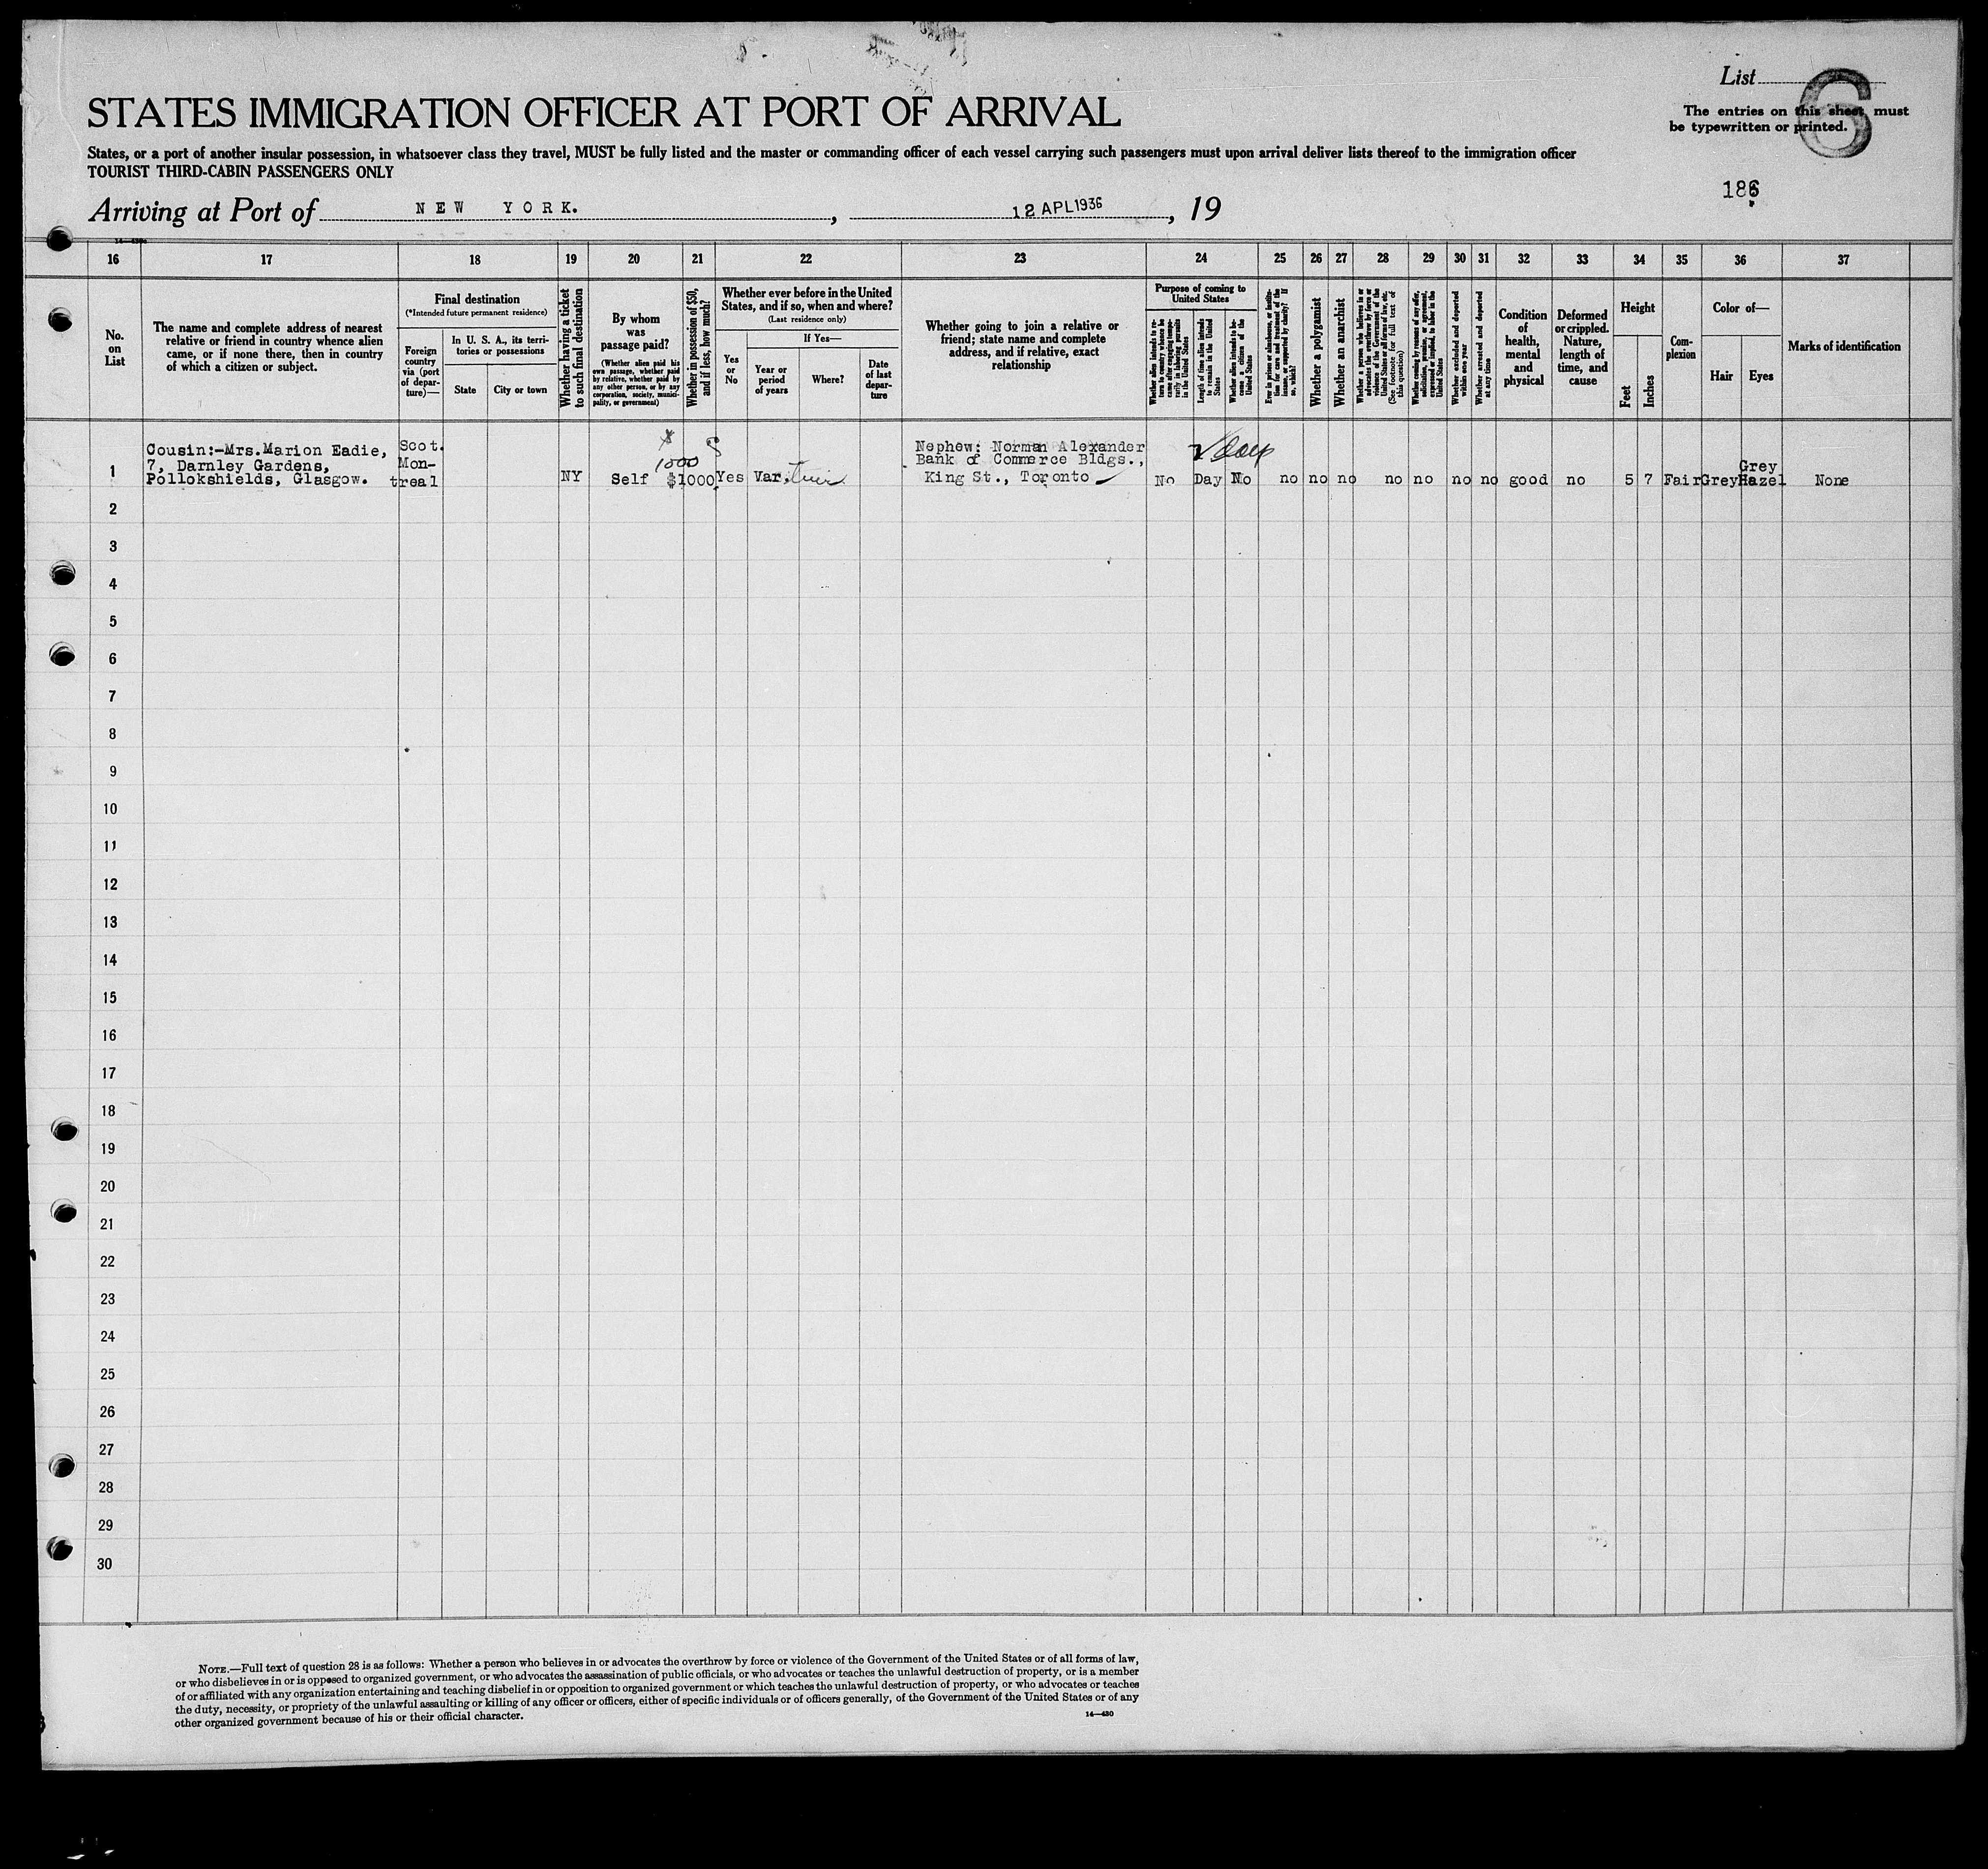 List
6
The entries on this sheet must
be typewritten or printed.
STATES IMMIGRATION OFFICER AT PORT OF ARRIVAL
States, or a port of another insular possession, in whatsoever class they travel, MUST be fully listed and the master or commanding officer of each vessel carrying such passengers must upon arrival deliver lists thereof to the immigration officer
TOURIST THIRD-CABIN PASSENGERS ONLY
186
Arriving at Port of NEW YORK. , 12 APL 1936 , 19
16 17 18 19 20 21 22 23 24 25 26 27 28 29 30 31 32 33 34 35 36 37
No.
on
List
The name and complete address of nearest
relative or friend in country whence alien
came, or if none there, then in country
of which a citizen or subject.
Final destination
(*Intended future permanent residence)
Foreign
country
via (port
of depar-
ture)—
In U. S. A., its terri-
tories or possessions
State
City or town
Whether having a ticket
to such final destination
By whom
was
passage paid?
(Whether alien paid his
own passage, whether paid
by relative, whether paid by
any other person, or by any
corporation, society, munici-
pality, or government)
Whether in possession of $50,
and if less, how much?
Whether ever before in the United
States, and if so, when and where?
(Last residence only)
Yes
or
No
If Yes—
Year or
period
of years
Where?
Date
of last
depar-
ture
Whether going to join a relative or
friend; state name and complete
address, and if relative, exact
relationship
Purpose of coming to
United States
Whether alien intends to re-
turn to country whence he
came after engaging tempo-
rarily in laboring pursuits
in the United States
Length of time alien intends
to remain in the United
States
Whether alien intends to be-
come a citizen of the
United States
Ever in prison or almshouse, or institu-
tion for care and treatment of the
insane, or supported by charity? If
so, which?
Whether a polygamist
Whether an anarchist
Whether a person who believes in or
advocates the overthrow by force or
violence of the Government of the
United States or all forms of law, etc.
(See footnote for full text of
this question)
Whether coming by reason of any offer,
solicitation, promise, or agreement,
expressed or implied, to labor in the
United States
Whether excluded and deported
within one year
Whether arrested and deported
at any time
Condition
of
health,
mental
and
physical
Deformed
or crippled.
Nature,
length of
time, and
cause
Height
Feet
Inches
Com-
plexion
Color of—
Hair
Eyes
Marks of identification
Cousin:-Mrs.Marion Eadie,
7, Darnley Gardens,
Pollokshields, Glasgow.
Scot.
Mon-
treal
NY
Self
1000
$1000
Yes
Var.
Nephew: Norman Alexander
Bank of Commerce Bldgs.,
King St., Toronto
No
Day
No
no no no no no no no good no 5 7 Fair Grey
Grey
Hazel
None
1
2
3
4
5
6
7
8
9
10
11
12
13
14
15
16
17
18
19
20
21
22
23
24
25
26
27
28
29
30
NOTE.—Full text of question 28 is as follows: Whether a person who believes in or advocates the overthrow by force or violence of the Government of the United States or of all forms of law,
or who disbelieves in or is opposed to organized government, or who advocates the assassination of public officials, or who advocates or teaches the unlawful destruction of property, or is a member
of or affiliated with any organization entertaining and teaching disbelief in or opposition to organized government or which teaches the unlawful destruction of property, or who advocates or teaches
the duty, necessity, or propriety of the unlawful assaulting or killing of any officer or officers, either of specific individuals or of officers generally, of the Government of the United States or of any
other organized government because of his or their official character.
14—430